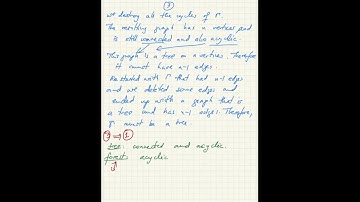 3
we destroy all the cycles of Γ.
The resulting graph has n vertices and
is still connected and also acyclic.
This graph is a tree on n vertices. Therefore
it cannot have n-1 edges.
We started with Γ that had n-1 edges
and we deleted some edges and
ended up with a graph that is
a tree and has n-1 edges. Therefore,
Γ must be a tree.
3 ⇒ 1
tree: connected and acyclic.
forest: acyclic